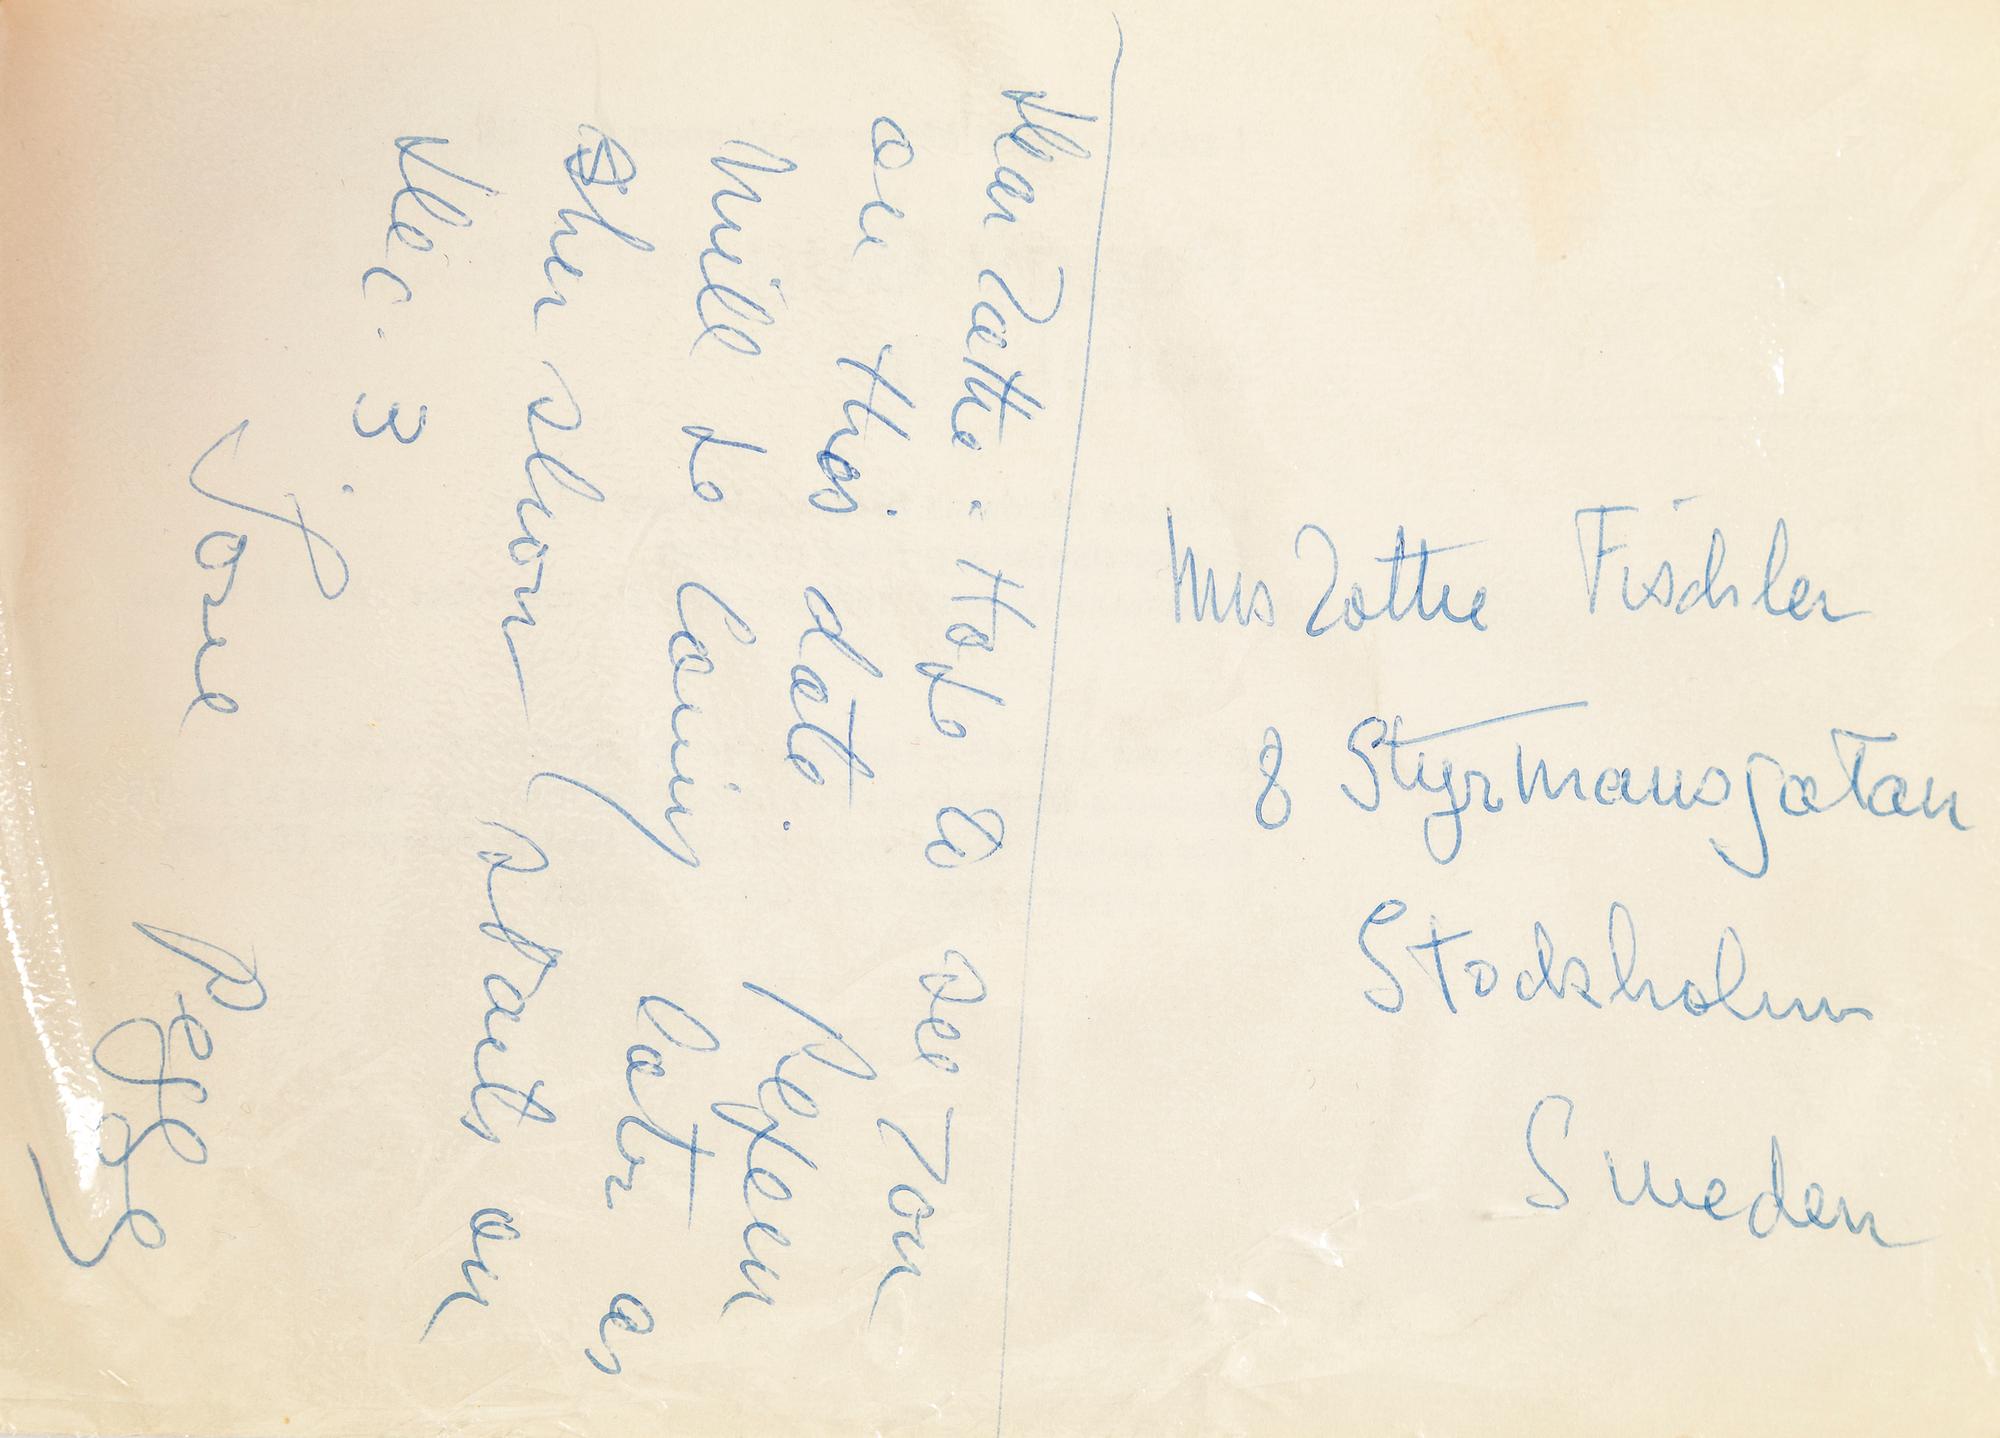 Dear Lotte: Hope to see You
on this date. Pegeen
will be leaving later as
sher show starts on
Dec. 3.
Love Peggy
Mrs Lotte Fischler
8 Styrmansgatan
Stockholm
Sweden